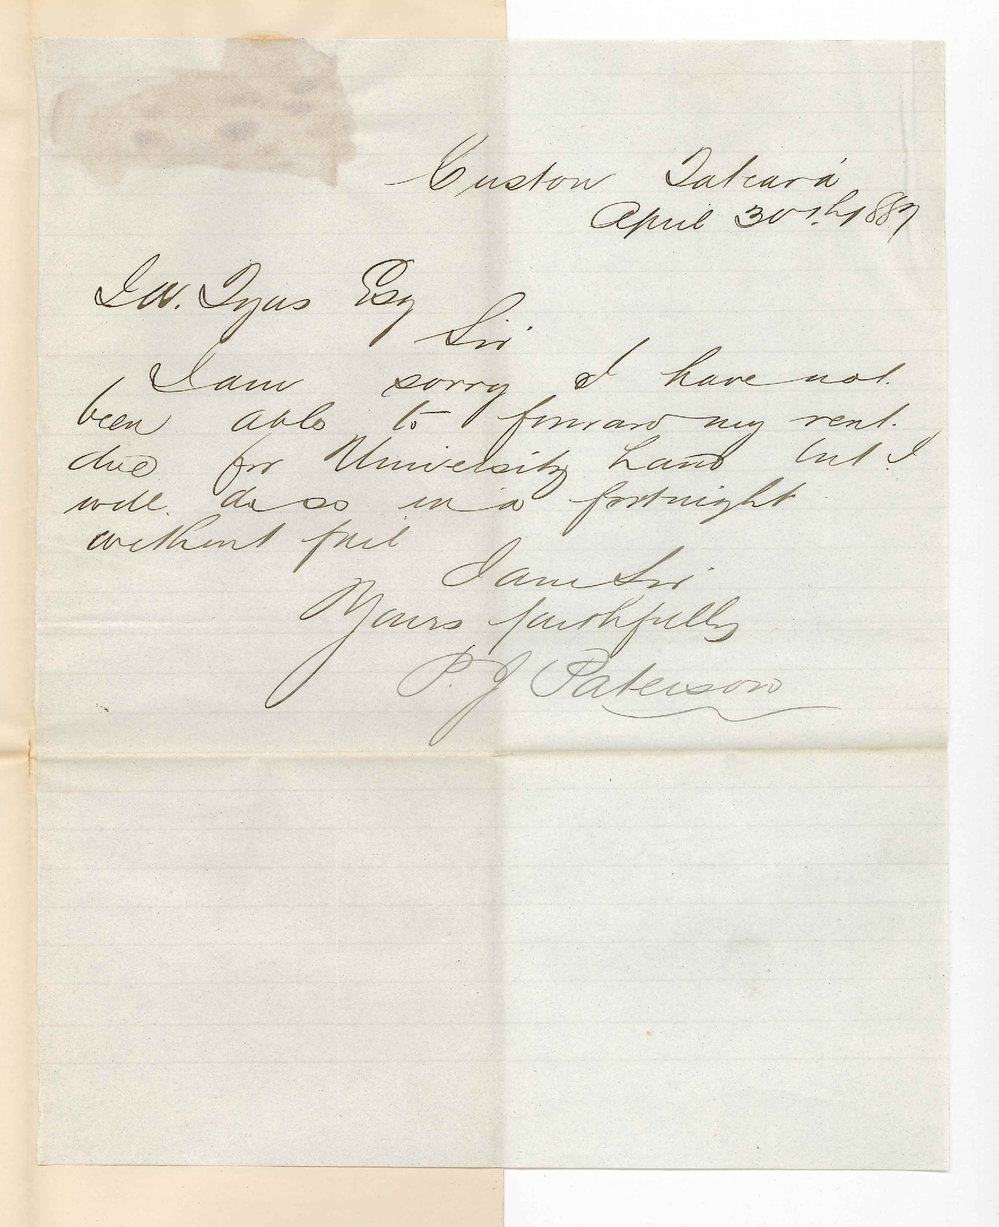 Custon Tatiara
April 30th 1887
J W. Tyas Esq
Sir
I am sorry I have not
been able to forward my rent
due for University Land but I
will do so in a fortnight
without fail
I am Sir
Yours faithfully
P. J Paterson